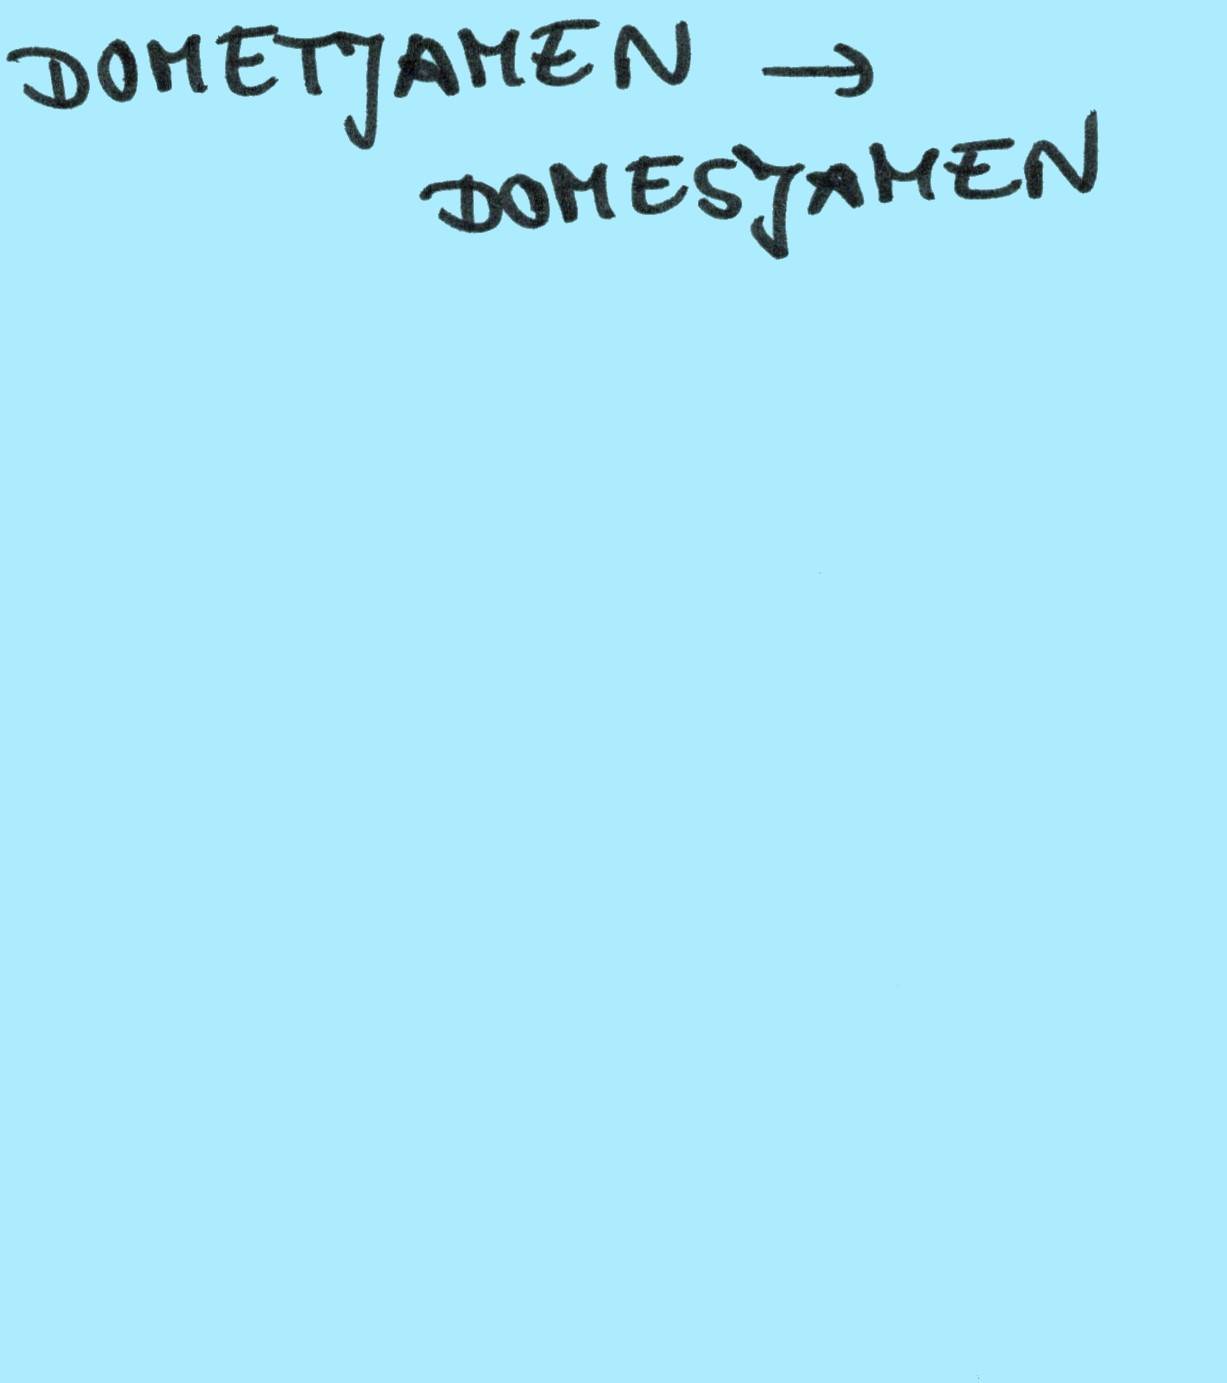 DOMETJAMEN →
DOMESJAMEN